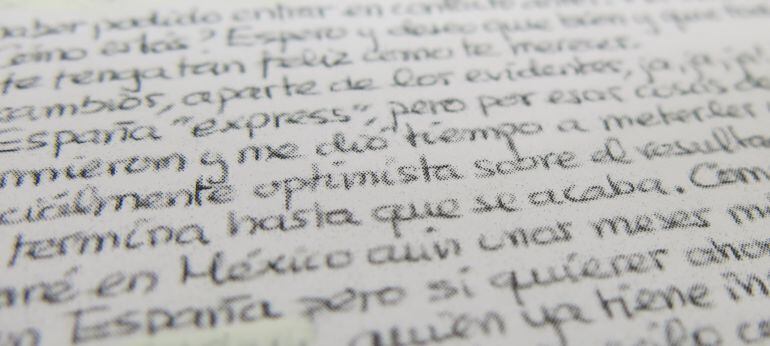 haber podido entrar en contacto
¿Cómo estás? Espero y deseo que bien y que
te tenga tan feliz como te mereces.
cambios, aparte de los evidentes, ja, ja, ja
España "express", pero por esas cosas de
y me dió tiempo a meterles
optimista sobre el
termina hasta que se acaba. Com
aré en México aún unos meses
en España pero si quieres
quien ya tiene